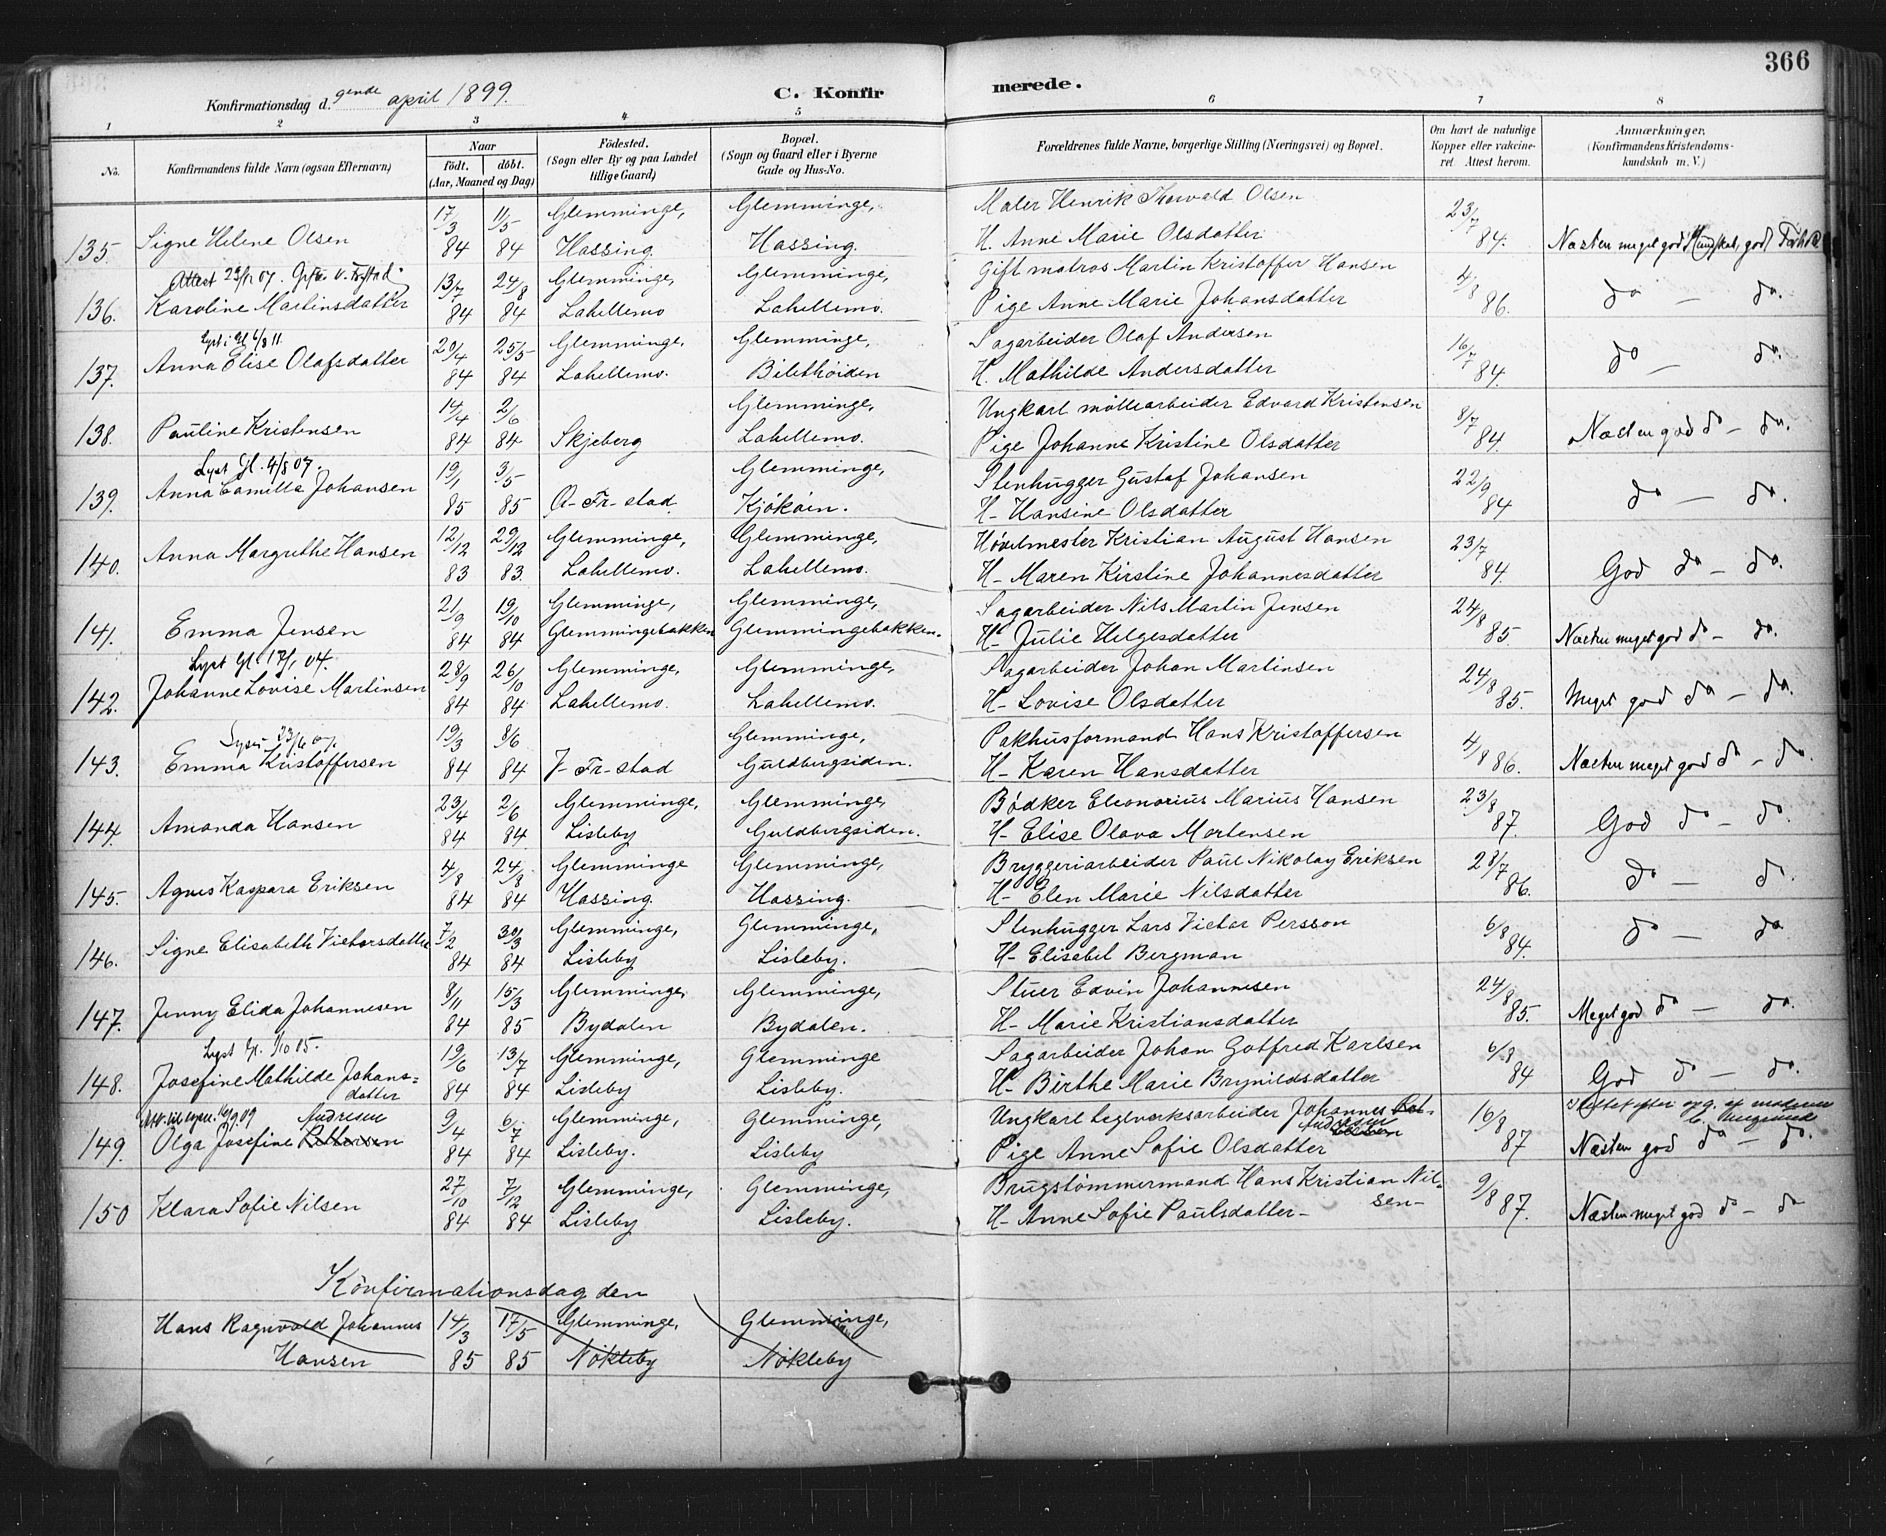 366
Konfirmationsdag d. 9ende april 1899.
C. Konfirmerede.
1 2 3 4 5 6 7 8
No.
Konfirmandens fulde Navn (ogsaa Efternavn)
Naar
födt. döbt.
(Aar, Maaned og Dag)
Födested.
(Sogn eller By og paa Landet
tillige Gaard)
Bopæl.
(Sogn og Gaard eller i Byerne
Gade og Hus-No.
Forældrenes fulde Navne, borgerlige Stilling (Næringsvei) og Bopæl.
Om havt de naturlige
Kopper eller vakcine-
ret. Attest herom.
Anmærkninger.
(Konfirmandens Kristendoms-
kundskab m. V.)
17/3 11/5 Glemminge, Glemminge, Maler Henrik Thorvald Olsen 23/7
135. Signe Helene Olsen 84 84 Hassing Hassing. H. Anne Marie Olsdatter 84. Næsten meget god Kundskab, god Forhold
Attest 23/1 07.
13/7 24/8 Glemminge, Glemminge, Gift matros Martin Kristoffer Hansen 4/8
136. Karoline Martinsdatter 84 84 Lahellemo Lahellemo. Pige Anne Marie Johansdatter 86. do — do.
Lyst i Gl 6/8 11.
20/4 25/5 Glemminge, Glemminge, Sagarbeider Olaf Andersen 16/7
137. Anna Elise Olafsdatter 84 84 Lahellemo. Bilethöiden H. Mathilde Andersdatter 84. do — do.
14/4 2/6 Glemminge, Ungkarl möllearbeider Edvard Kristensen 8/7
138. Pauline Kristensen 84 84 Skjeberg Lahellemo. Pige Johanne Kristine Olsdatter 84 Næsten god do — do.
Lyst Gl. 4/8 07.
19/1 3/5 Glemminge, Stenhugger Gustaf Johansen 22/9
139. Anna Camilla Johansen 85 85 O-Fr-stad Kjököin. H- Hansine Olsdatter 84 do — do.
12/12 29/12 Glemminge, Glemminge, Hövelmester Kristian August Hansen 23/7
140. Anna Margrethe Hansen 83 83. Lahellemo. Lahellemo. H- Maren Kirstine Johannesdatter 84. God do — do.
21/9 19/10 Glemminge, Glemminge, Sagarbeider Nils Martin Jensen 24/8
141. Emma Jensen 84 84 Glemmingebakken Glemmingebakken. H- Julie Helgesdatter 85. Næsten meget god do — do.
Lyst Gl. 17/1 04.
28/9 26/10 Glemminge, Glemminge, Sagarbeider Johan Martinsen 24/8
142. Johanne Lovise Martinsen 84 84 Lahellemo. Lahellemo. H- Lovise Olsdatter 85. Meget god do — do.
23/6 07.
19/3 8/6 Glemminge, Pakhusformand Hans Kristoffersen 4/8
143. Emma Kristoffersen 84 84 V-Fr-stad Guldbergsiden. H- Karen Hansdatter 86. Næsten meget god do — do.
23/4 2/6 Glemminge, Glemminge, Bödker Eleonorius Marius Hansen 23/8
144. Amanda Hansen 84 84. Lisleby Guldbergsiden. H- Elise Olava Mortensen 87. God do — do.
4/8 24/8 Glemminge Glemminge, Bryggeriarbeider Paul Nikolay Eriksen 28/7
145. Agnes Kaspara Eriksen 84 84 Hassing Hassing. H- Elen Marie Nilsdatter 86. do — do.
7/2 30/3 Glemminge, Glemminge, Stenhugger Lars Victor Persson 6/8
146. Signe Elisabeth Victorsdatter 84 84 Lisleby Lisleby. H- Elisabet Bergman 84. do — do
8/11 15/3 Glemminge, Glemminge, Stuer Edvin Johannesen 24/8
147. Jenny Elida Johannesen 84 85 Bydalen Bydalen. H- Marie Kristiansdatter 85. Meget god do — do.
Lyst Gl. 05.
19/6 13/7 Glemminge, Glemminge Sagarbeider Johan Gotfred Karlsen 6/8
148. Josefine Mathilde Johans=
datter 84 84 Lisleby Lisleby. H- Birthe Marie Brynildsdatter 84 God do — do.
Andresen
9/4 6/7 Glemminge, Glemminge, Ungkarl teglverksarbeider Johannes 16/8
Andresen
149. Olga Josefine Pettersen 84 84 Lisleby. Lisleby Pige Anne Sofie Olsdatter 87 Næsten god do — do.
27/10 7/12 Glemminge, Glemminge, Brugstömmermand Hans Kristian Nil-
sen- 9/8
150 Klara Sofie Nilsen 84 84 Lisleby Lisleby. H- Anne Sofie Paulsdatter- 87. Næsten meget god do — do
Konfirmationsdag den
Hans Ragnvald Johannes 14/3 17/5 Glemminge, Glemminge,
Hansen 85 85 Nökleby Nökleby